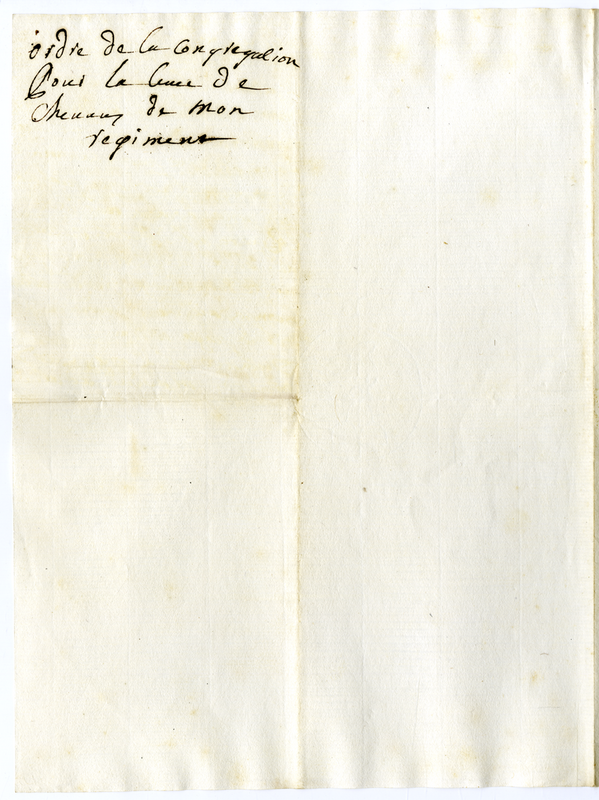 ordre de la congregation
Pour la leuee de
cheuaux de mon
regiment